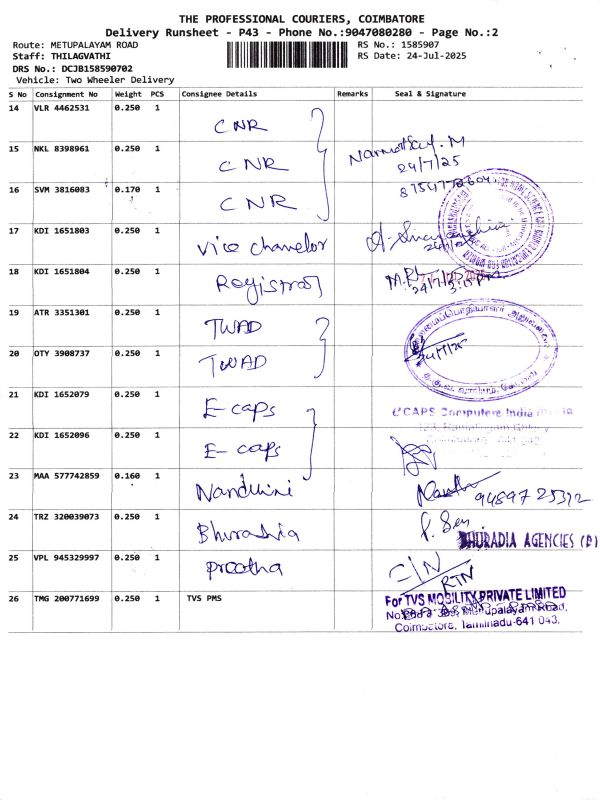 THE PROFESSIONAL COURIERS, COIMBATORE
Delivery Runsheet - P43 - Phone No.:9047080280 - Page No.:2
Route: METUPALAYAM ROAD RS No.: 1585907
Staff: THILAGVATHI RS Date: 24-Jul-2025
DRS No.: DCJB158590702
Vehicle: Two Wheeler Delivery
S No Consignment No Weight PCS Consignee Details Remarks Seal & Signature
14 VLR 4462531 0.250 1 CNR
15 NKL 8398961 0.250 1 CNR
24/7/25
16 SVM 3816083 0.170 1 CNR
17 KDI 1651803 0.250 1 Vice chancelor
18 KDI 1651804 0.250 1 Registrar
19 ATR 3351301 0.250 1 TWAD
20 OTY 3908737 0.250 1 TWAD
21 KDI 1652079 0.250 1 E-caps
eCAPS Computers India
22 KDI 1652096 0.250 1 E-caps
23 MAA 577742859 0.160 1 Nandhini
24 TRZ 320039073 0.250 1 Bhuradia
BHURADIA AGENCIES (P)
25 VPL 945329997 0.250 1 Preetha
C/N
RTN
26 TMG 200771699 0.250 1 TVS PMS
For TVS MOBILITY PRIVATE LIMITED
Coimbatore, Tamilnadu-641 043.